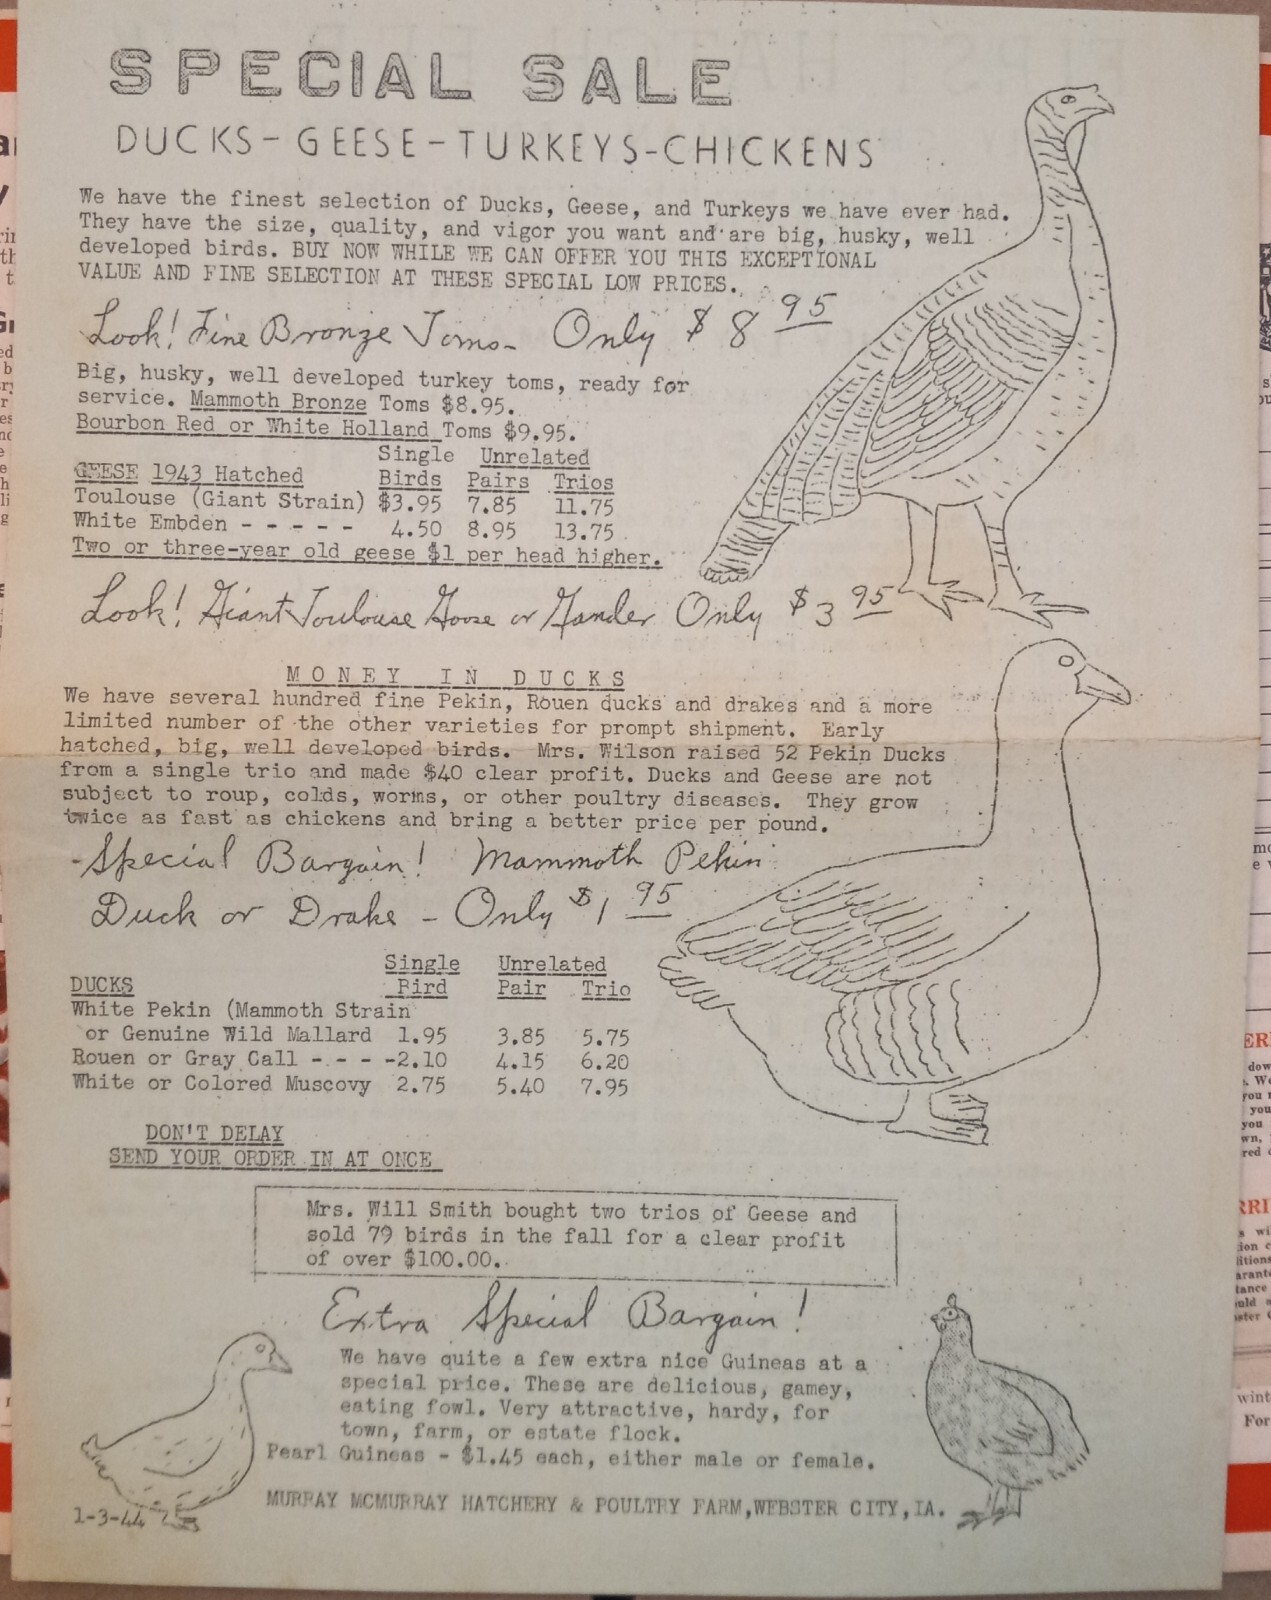 SPECIAL SALE
DUCKS-GEESE-TURKEYS-CHICKENS
We have the finest selection of Ducks, Geese, and Turkeys we have ever had.
They have the size, quality, and vigor you want and are big, husky, well
developed birds. BUY NOW WHILE WE CAN OFFER YOU THIS EXCEPTIONAL
VALUE AND FINE SELECTION AT THESE SPECIAL LOW PRICES.
Look! Fine Bronze Toms- Only $8 95
Big, husky, well developed turkey toms, ready for
service. Mammoth Bronze Toms $8.95.
Bourbon Red or White Holland Toms $9.95.
Single Unrelated
GEESE 1943 Hatched Birds Pairs Trios
Toulouse (Giant Strain) $3.95 7.85 11.75
White Embden - - - - - 4.50 8.95 13.75
Two or three-year old geese $1 per head higher.
Look! Giant Toulouse Goose or Gander Only $3 95
MONEY IN DUCKS
We have several hundred fine Pekin, Rouen ducks and drakes and a more
limited number of the other varieties for prompt shipment. Early
hatched, big, well developed birds. Mrs. Wilson raised 52 Pekin Ducks
from a single trio and made $40 clear profit. Ducks and Geese are not
subject to roup, colds, worms, or other poultry diseases. They grow
twice as fast as chickens and bring a better price per pound.
-Special Bargain! Mammoth Pekin
Duck or Drake - Only $1 95
Single Unrelated
DUCKS Bird Pair Trio
White Pekin (Mammoth Strain
or Genuine Wild Mallard 1.95 3.85 5.75
Rouen or Gray Call - - - -2.10 4.15 6.20
White or Colored Muscovy 2.75 5.40 7.95
DON'T DELAY
SEND YOUR ORDER IN AT ONCE
Mrs. Will Smith bought two trios of Geese and
sold 79 birds in the fall for a clear profit
of over $100.00.
Extra Special Bargain!
We have quite a few extra nice Guineas at a
special price. These are delicious, gamey,
eating fowl. Very attractive, hardy, for
town, farm, or estate flock.
Pearl Guineas - $1.45 each, either male or female.
MURRAY MCMURRAY HATCHERY & POULTRY FARM,WEBSTER CITY,IA.
1-3-44